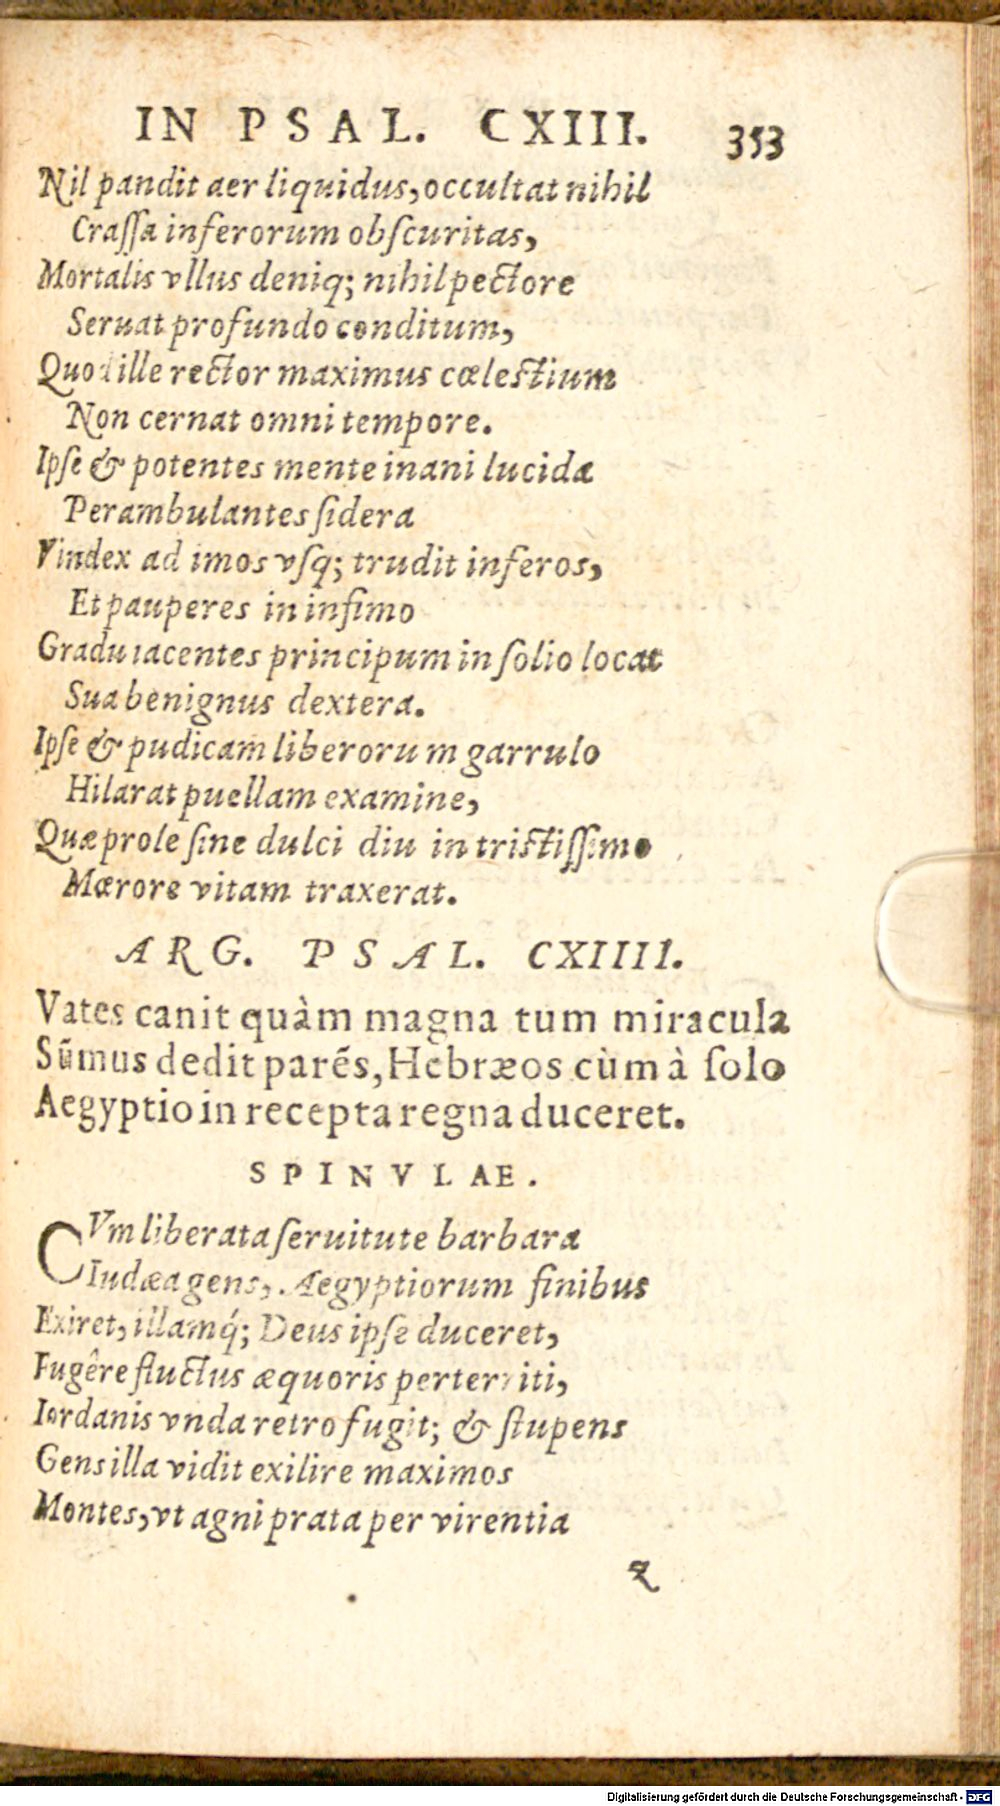 IN PSAL. CXIII. 353
Nil pandit aer liquidus, occultat nihil
Crassa inferorum obscuritas,
Mortalis vllus deniq; nihil pectore
Seruat profundo conditum,
Quod ille rector maximus cælestium
Non cernat omni tempore.
Ipse & potentes mente inani lucida
Perambulantes sidera
Vindex ad imos vsq; trudit inferos,
Et pauperes in infimo
Gradu iacentes principum in solio locat
Sua benignus dextera.
Ipse & pudicam liberorum garrulo
Hilarat puellam examine,
Quæ prole sine dulci diu in tristissimo
Mærore vitam traxerat.
ARG. PSAL. CXIIII.
Vates canit quàm magna tum miracula
Sũmus dedit parẽs, Hebræos cùm à solo
Aegyptio in recepta regna duceret.
SPINVLAE.
CVm liberata seruitute barbara
Iudæa gens, Aegyptiorum finibus
Exiret, illamq́; Deus ipse duceret,
Fugêre fluctus æquoris perterriti,
Iordanis vnda retro fugit; & stupens
Gens illa vidit exilire maximos
Montes, vt agni prata per virentia
z
Digitalisierung gefördert durch die Deutsche Forschungsgemeinschaft - DFG